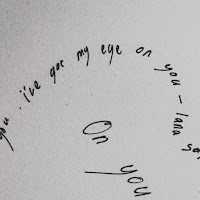 you. i've got my eye on you - lana
On
you